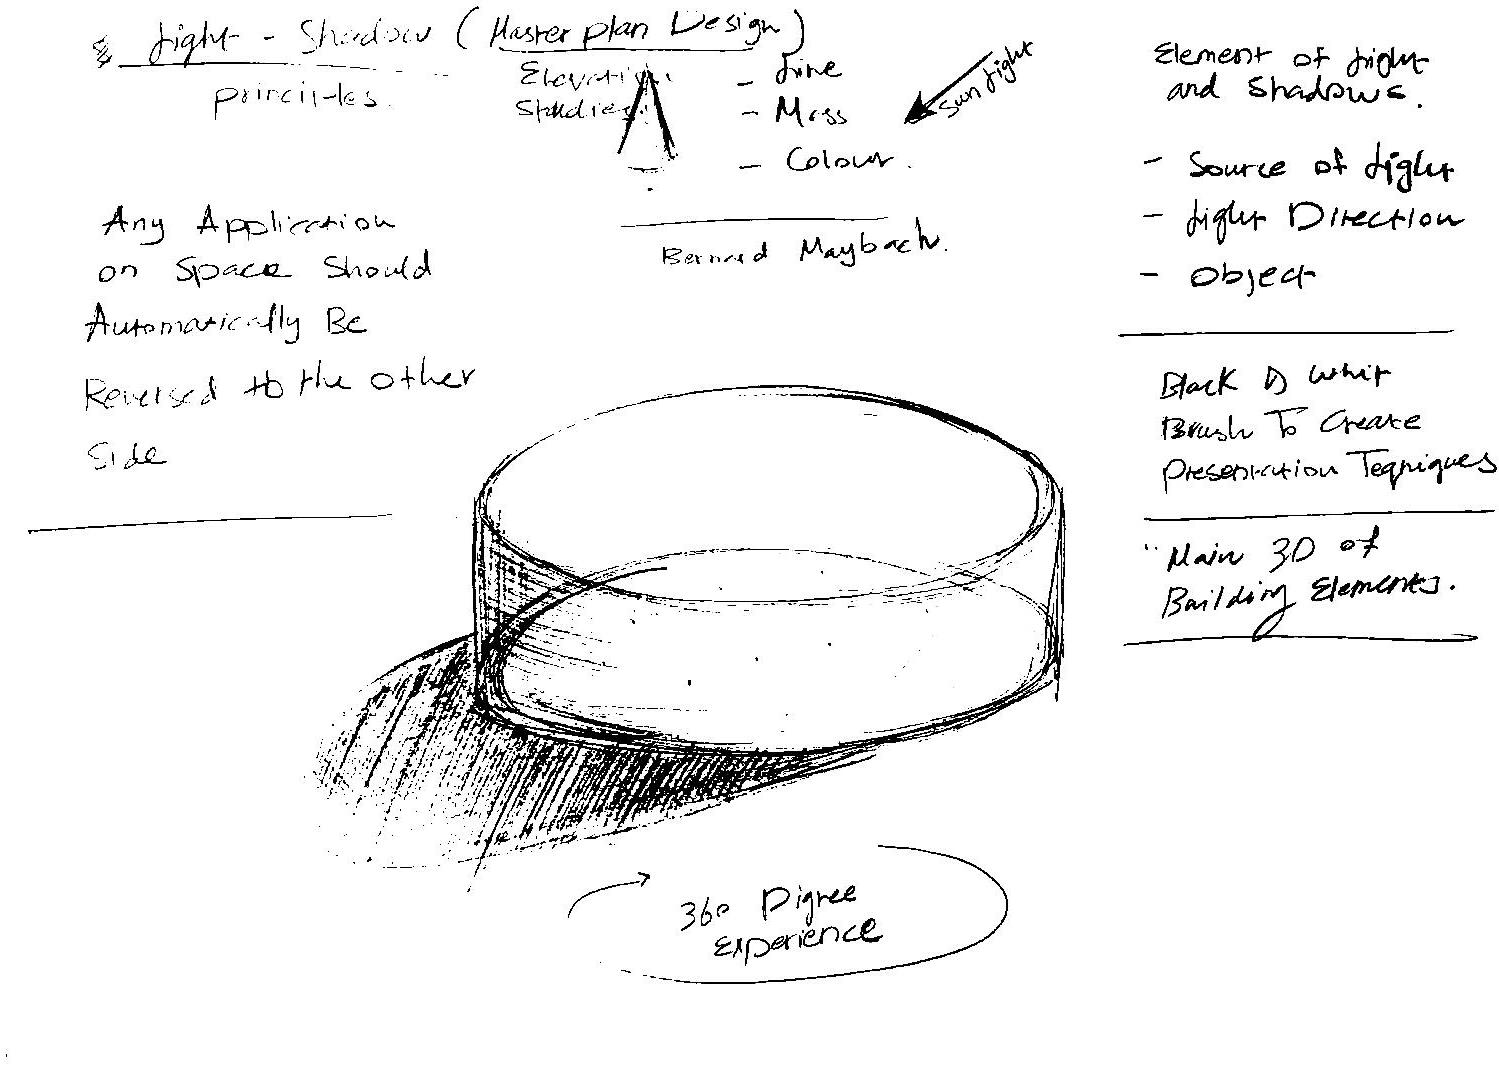 Light - Shadow (Master plan Design)
principles.
Elevation
Studies
- Line
- Mass
- Colour.
Sun Light
Bernard Maybach.
Any Application
on Space Should
Automatically Be
Reversed to the other
Side
Element of Light
and Shadows.
- Source of Light
- Light Direction
- Object
Black & Whit
Brush To Create
Presentation Teqniques
Main 3D of
Building Elements.
360 Digree
Experience